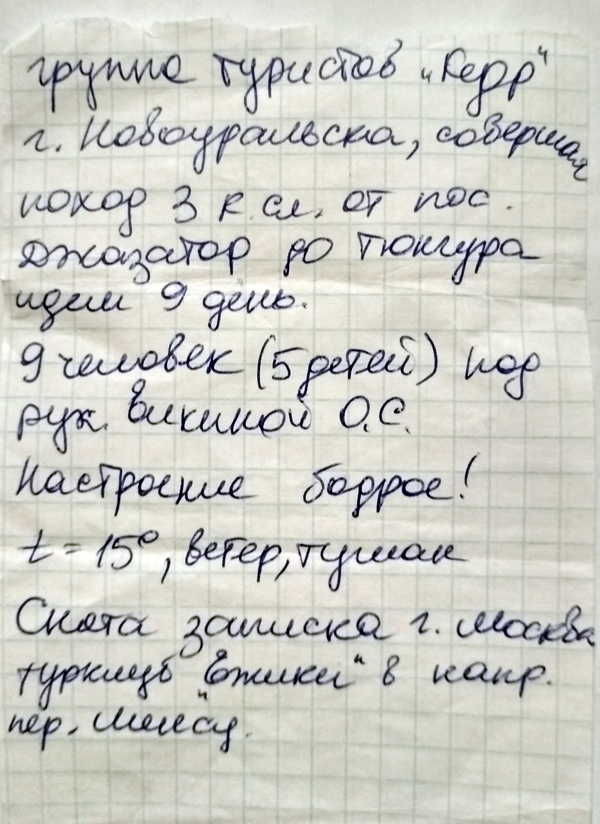 группа туристов „Кедр"
г. Новоуральска, совершая
поход 3 к. сл. от пос.
Джазатор до Тюнгура
идем 9 день.
9 человек (5 детей) под
рук. Викиной О.С.
Настроение бодрое!
t = 15°, ветер, туман
Снята записка г. Москва
турклуб "Ёжики" в напр.
пер.